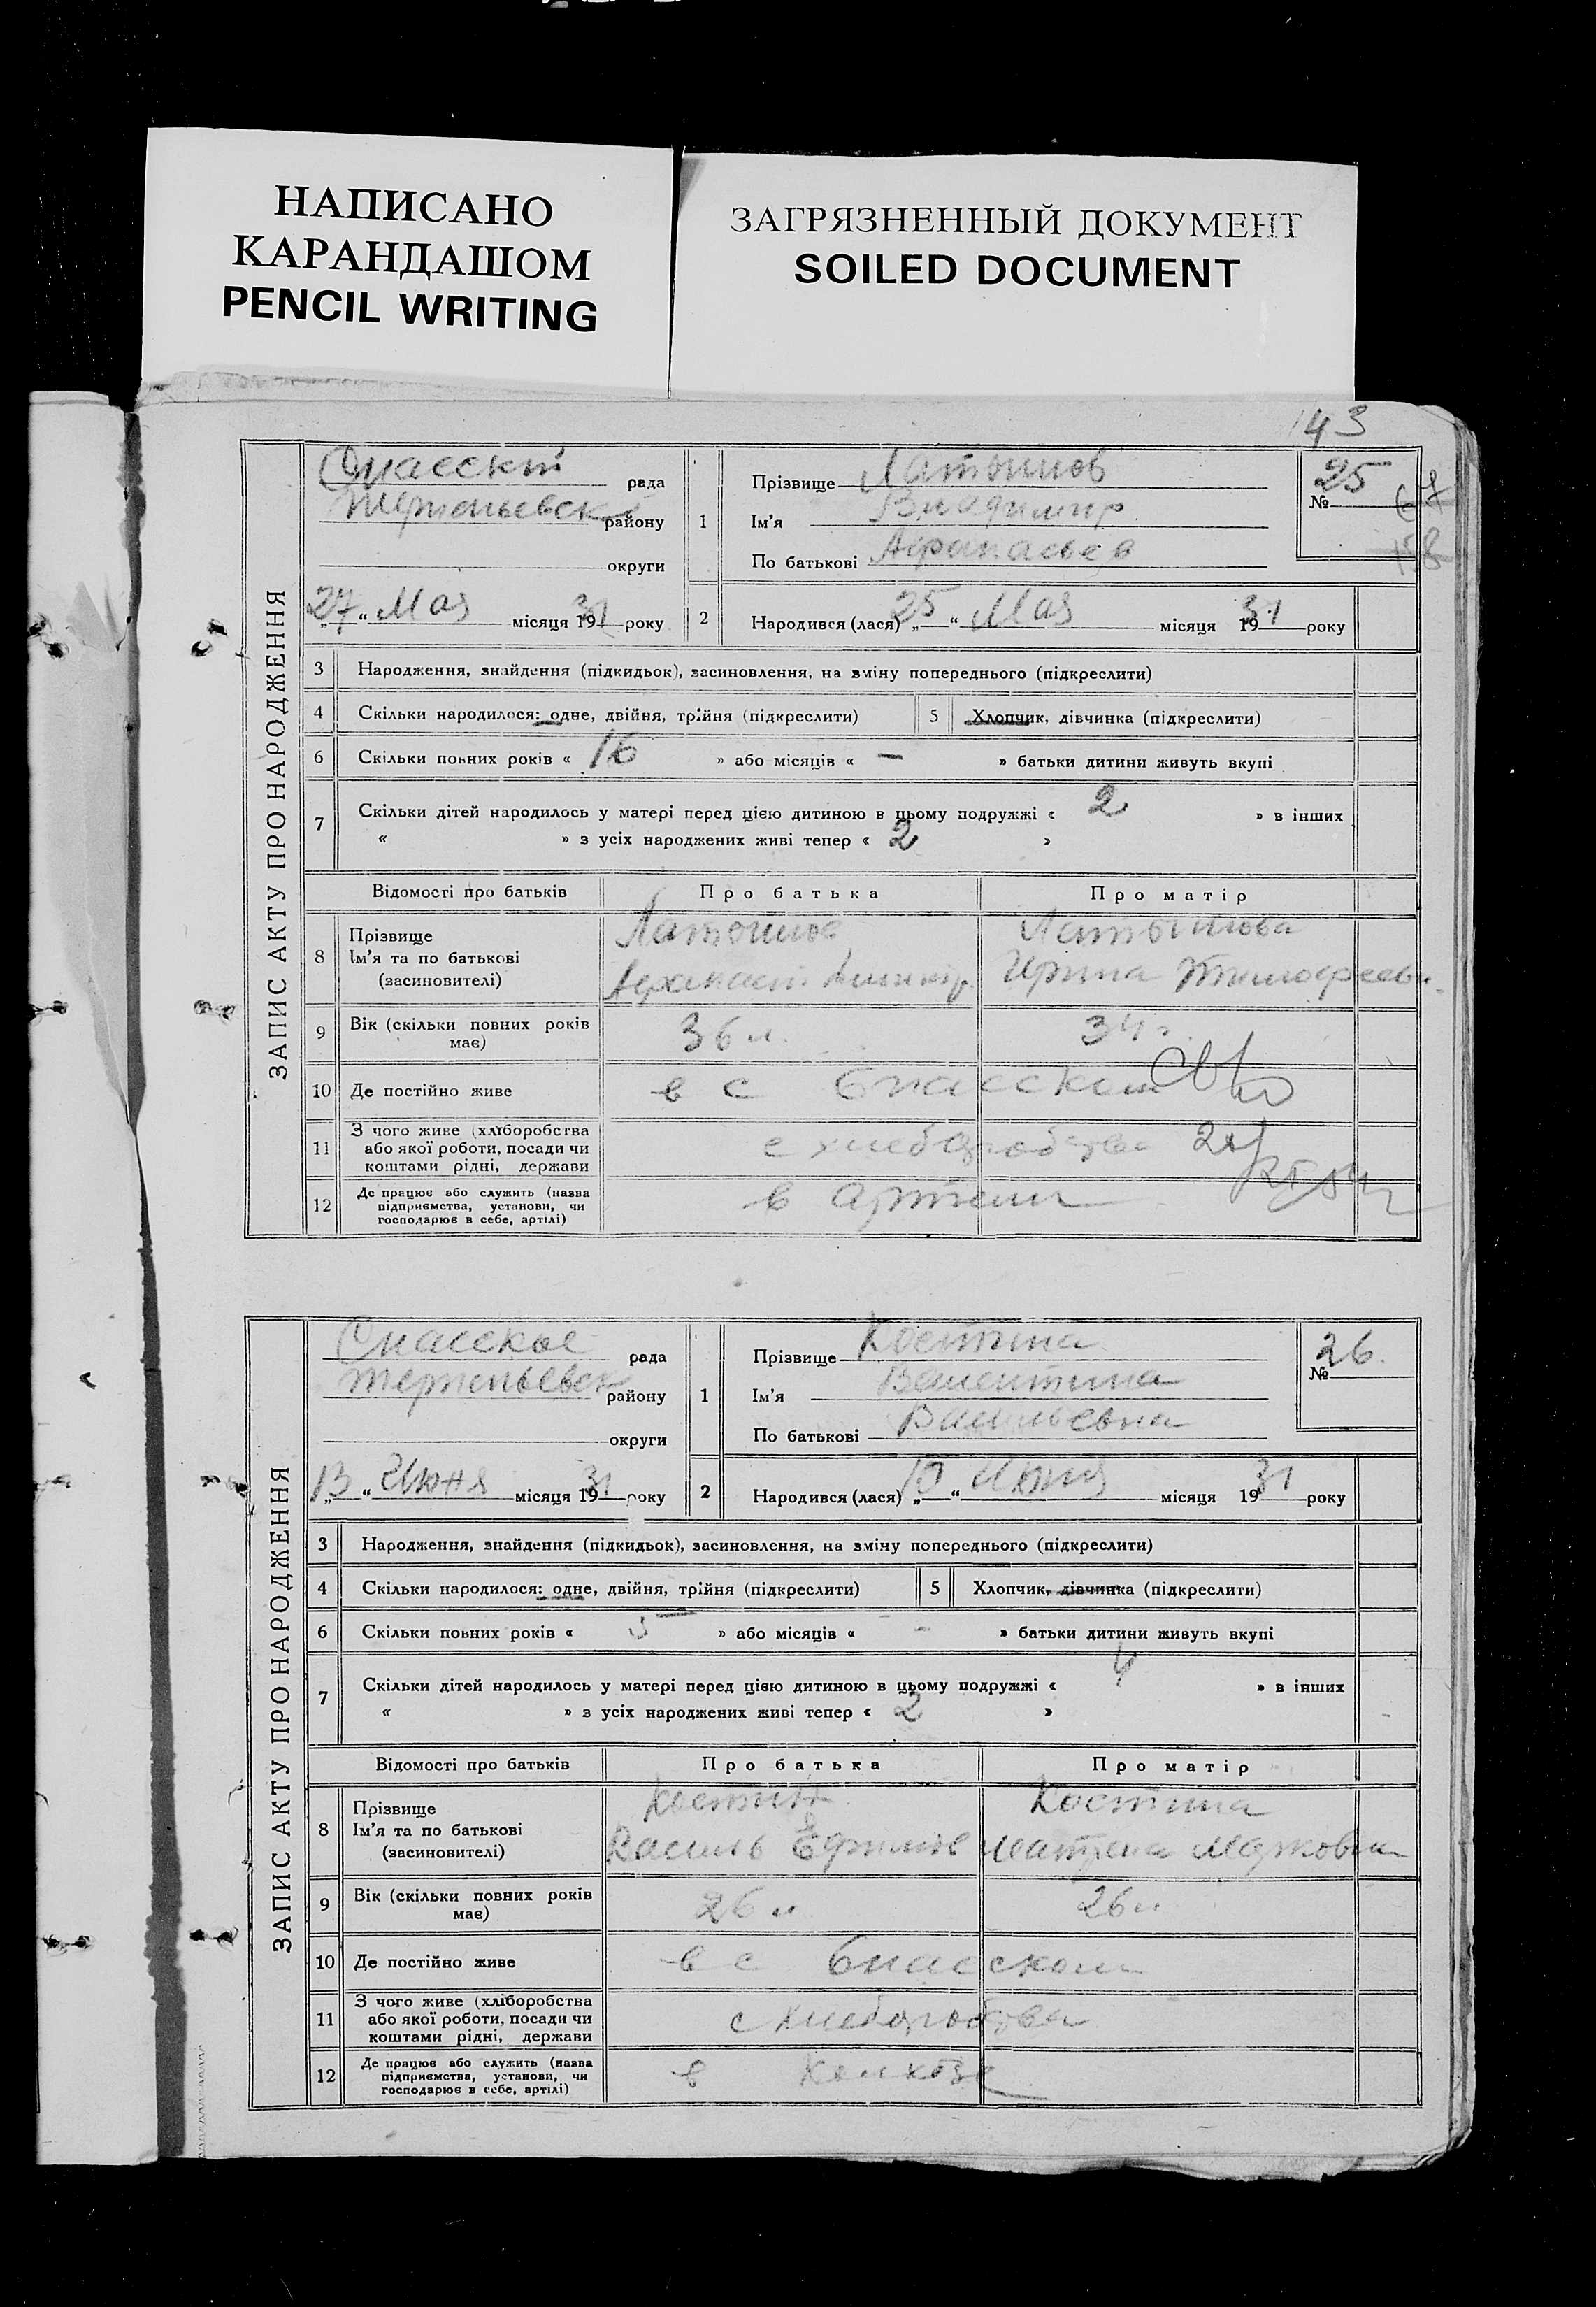 НАПИСАНО
КАРАНДАШОМ
PENCIL WRITING
ЗАГРЯЗНЕННЫЙ ДОКУМЕНТ
SOILED DOCUMENT
143
ЗАПИС АКТУ ПРО НАРОДЖЕННЯ
Спасский рада
района району
округи
„27“ Мая місяця 1931 року
1
Прізвище
Ім'я Владимир
По батькові Афанасьев
№ 25
67
158
2 Народився (лася) „25“ Мая місяця 1931 року
3 Народження, знайдення (підкидьок), засиновлення, на зміну попереднього (підкреслити)
4 Скільки народилося: одне, двійня, трійня (підкреслити) 5 Хлопчик, дівчинка (підкреслити)
6 Скільки повних років « 16 » або місяців « — » батьки дитини живуть вкупі
7 Скільки дітей народилось у матері перед цією дитиною в цьому подружжі « 2 » в інших
« » з усіх народжених живі тепер « 2 »
Відомості про батьків Про батька Про матір
8 Прізвище
Ім'я та по батькові Ирина Тимофеевн.
(засиновителі)
9 Вік (скільки повних років має) 36 л. 34 г.
10 Де постійно живе в с Спасском
11 З чого живе (хліборобства або якої роботи, посади чи коштами рідні, держави с хлеборобства
12 Де працює або служить (назва підприємства, установи, чи господарює в себе, артілі) в артели
ЗАПИС АКТУ ПРО НАРОДЖЕННЯ
Спасское рада
району
округи
„13“ Июня місяця 1931 року
1
Прізвище Костина
Ім'я Валентина
По батькові Васильевна
№ 26.
2 Народився (лася) „10“ Июня місяця 1931 року
3 Народження, знайдення (підкидьок), засиновлення, на зміну попереднього (підкреслити)
4 Скільки народилося: одне, двійня, трійня (підкреслити) 5 Хлопчик, дівчинка (підкреслити)
6 Скільки повних років « 5 » або місяців « - » батьки дитини живуть вкупі
7 Скільки дітей народилось у матері перед цією дитиною в цьому подружжі « 4 » в інших
« » з усіх народжених живі тепер « 2 »
Відомості про батьків Про батька Про матір
8 Прізвище Костин Костина
Ім'я та по батькові Василь Ефимов Матрена Марковна
(засиновителі)
9 Вік (скільки повних років має) 26 л 26 л
10 Де постійно живе в с Спасском
11 З чого живе (хліборобства або якої роботи, посади чи коштами рідні, держави с хлеборобства
12 Де працює або служить (назва підприємства, установи, чи господарює в себе, артілі) в колхозе